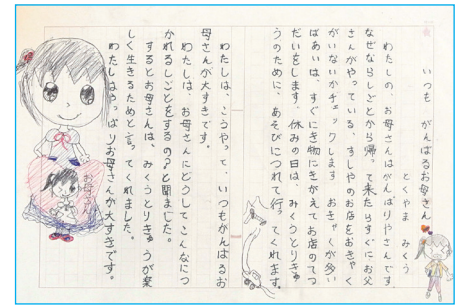 いつも がんばるお母さん
とくやま みくう
わたしの、お母さんはがんばりやさんです。
なぜならしごとから帰って来たらすぐにお父
さんがやっている、すしやのお店をおきゃく
がいないかチェックします おきゃくが多い
ばあいは、すぐにき物にきがえてお店のてつ
だいをします。休みの日は、みくうとりきゅ
うのために、あそびにつれて行ってくれます。
わたしは、こうやって、いつもがんばるお
母さんが大すきです。
わたしは、お母さんにどうしてこんなにつ
かれるしごとをするの?と聞ました。
するとお母さんは、みくうとりきゅうが楽
しく生きるためと言ってくれました。
わたしはやっぱりお母さんが大すきです。
お母さん